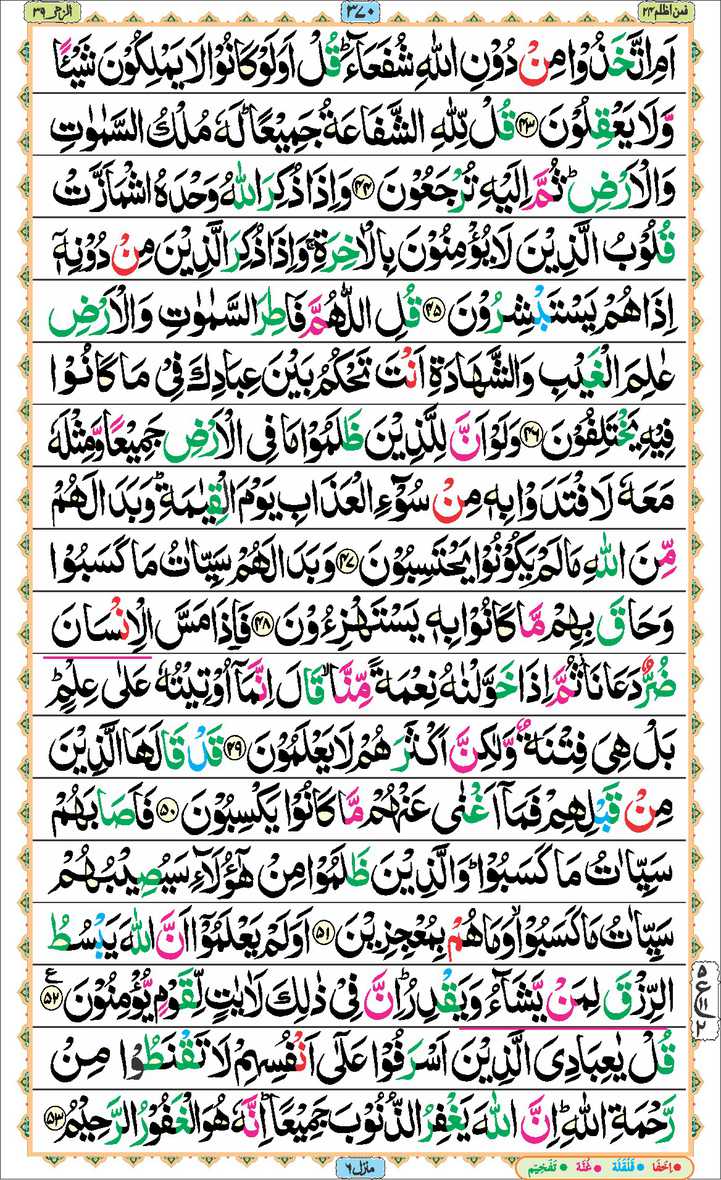 فمن اظلم ٢٤
٣٧٠
الزمر ٣٩
اَمِ اتَّخَذُوْا مِنْ دُوْنِ اللّٰهِ شُفَعَآءَ ؕ قُلْ اَوَلَوْ كَانُوْا لَا يَمْلِكُوْنَ شَيْـًٔا
وَّلَا يَعْقِلُوْنَ ﴿۴۳﴾ قُلْ لِّلّٰهِ الشَّفَاعَةُ جَمِيْعًا ؕ لَهٗ مُلْكُ السَّمٰوٰتِ
وَالْاَرْضِ ؕ ثُمَّ اِلَيْهِ تُرْجَعُوْنَ ﴿۴۴﴾ وَاِذَا ذُكِرَ اللّٰهُ وَحْدَهُ اشْمَاَزَّتْ
قُلُوْبُ الَّذِيْنَ لَا يُؤْمِنُوْنَ بِالْاٰخِرَةِ ۚ وَاِذَا ذُكِرَ الَّذِيْنَ مِنْ دُوْنِهٖۤ
اِذَا هُمْ يَسْتَبْشِرُوْنَ ﴿۴۵﴾ قُلِ اللّٰهُمَّ فَاطِرَ السَّمٰوٰتِ وَالْاَرْضِ
عٰلِمَ الْغَيْبِ وَالشَّهَادَةِ اَنْتَ تَحْكُمُ بَيْنَ عِبَادِكَ فِيْ مَا كَانُوْا
فِيْهِ يَخْتَلِفُوْنَ ﴿۴۶﴾ وَلَوْ اَنَّ لِلَّذِيْنَ ظَلَمُوْا مَا فِى الْاَرْضِ جَمِيْعًا وَّمِثْلَهٗ
مَعَهٗ لَافْتَدَوْا بِهٖ مِنْ سُوْٓءِ الْعَذَابِ يَوْمَ الْقِيٰمَةِ ؕ وَبَدَا لَهُمْ
مِّنَ اللّٰهِ مَا لَمْ يَكُوْنُوْا يَحْتَسِبُوْنَ ﴿۴۷﴾ وَبَدَا لَهُمْ سَيِّاٰتُ مَا كَسَبُوْا
وَحَاقَ بِهِمْ مَّا كَانُوْا بِهٖ يَسْتَهْزِءُوْنَ ﴿۴۸﴾ فَاِذَا مَسَّ الْاِنْسَانَ
ضُرٌّ دَعَانَا ؗ ثُمَّ اِذَا خَوَّلْنٰهُ نِعْمَةً مِّنَّا ۙ قَالَ اِنَّمَاۤ اُوْتِيْتُهٗ عَلٰى عِلْمٍ ؕ
بَلْ هِىَ فِتْنَةٌ وَّلٰكِنَّ اَكْثَرَهُمْ لَا يَعْلَمُوْنَ ﴿۴۹﴾ قَدْ قَالَهَا الَّذِيْنَ
مِنْ قَبْلِهِمْ فَمَاۤ اَغْنٰى عَنْهُمْ مَّا كَانُوْا يَكْسِبُوْنَ ﴿۵۰﴾ فَاَصَابَهُمْ
سَيِّاٰتُ مَا كَسَبُوْا ؕ وَالَّذِيْنَ ظَلَمُوْا مِنْ هٰۤؤُلَآءِ سَيُصِيْبُهُمْ
سَيِّاٰتُ مَا كَسَبُوْا ۙ وَمَا هُمْ بِمُعْجِزِيْنَ ﴿۵۱﴾ اَوَلَمْ يَعْلَمُوْۤا اَنَّ اللّٰهَ يَبْسُطُ
الرِّزْقَ لِمَنْ يَّشَآءُ وَيَقْدِرُ ؕ اِنَّ فِيْ ذٰلِكَ لَاٰيٰتٍ لِّقَوْمٍ يُّؤْمِنُوْنَ ﴿۵۲﴾ ع
قُلْ يٰعِبَادِىَ الَّذِيْنَ اَسْرَفُوْا عَلٰٓى اَنْفُسِهِمْ لَا تَقْنَطُوْا مِنْ
رَّحْمَةِ اللّٰهِ ؕ اِنَّ اللّٰهَ يَغْفِرُ الذُّنُوْبَ جَمِيْعًا ؕ اِنَّهٗ هُوَ الْغَفُوْرُ الرَّحِيْمُ ﴿۵۳﴾
منزل ٦
• اِخفَا • قَلْقَلَة • غُنَّة • تَفْخِيْم